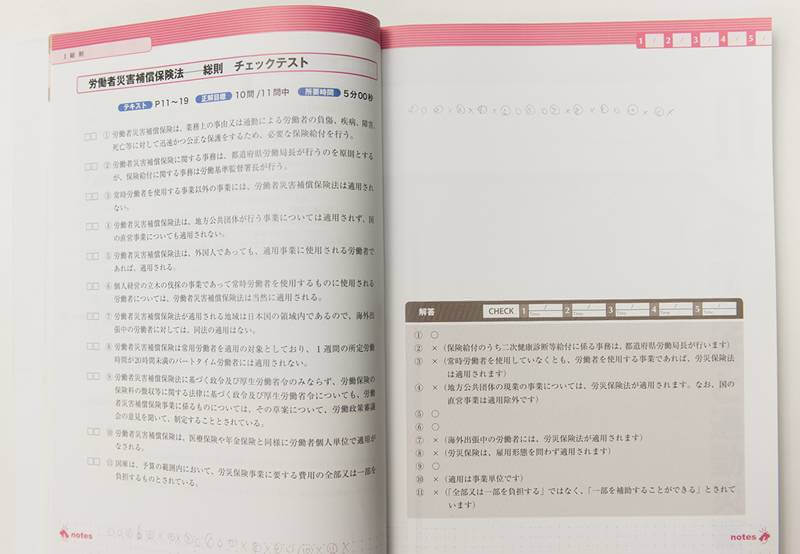 1 総則
労働者災害補償保険法――総則 チェックテスト
テキスト P11～19 正解目標 10問/11問中 所要時間 5分00秒
□□ ① 労働者災害補償保険は、業務上の事由又は通勤による労働者の負傷、疾病、障害、
死亡等に対して迅速かつ公正な保護をするため、必要な保険給付を行う。
□□ ② 労働者災害補償保険に関する事務は、都道府県労働局長が行うのを原則とする
が、保険給付に関する事務は労働基準監督署長が行う。
□□ ③ 常時労働者を使用する事業以外の事業には、労働者災害補償保険法は適用され
ない。
□□ ④ 労働者災害補償保険法は、地方公共団体が行う事業については適用されず、国
の直営事業についても適用されない。
□□ ⑤ 労働者災害補償保険法は、外国人であっても、適用事業に使用される労働者で
あれば、適用される。
□□ ⑥ 個人経営の立木の伐採の事業であって常時労働者を使用するものに使用される
労働者については、労働者災害補償保険法は当然に適用される。
□□ ⑦ 労働者災害補償保険法が適用される地域は日本国の領域内であるので、海外出
張中の労働者に対しては、同法の適用はない。
□□ ⑧ 労働者災害補償保険は常用労働者を適用の対象としており、1週間の所定労働
時間が20時間未満のパートタイム労働者には適用されない。
□□ ⑨ 労働者災害補償保険法に基づく政令及び厚生労働省令のみならず、労働保険の
保険料の徴収等に関する法律に基づく政令及び厚生労働省令についても、労働
者災害補償保険事業に係るものについては、その草案について、労働政策審議
会の意見を聞いて、制定することとされている。
□□ ⑩ 労働者災害補償保険は、医療保険や年金保険と同様に労働者個人単位で適用が
なされる。
□□ ⑪ 国庫は、予算の範囲内において、労災保険事業に要する費用の全部又は一部を
負担するものとされている。
notes
1 / 2 / 3 / 4 / 5 /
解答 CHECK 1 / Time 2 / Time 3 / Time 4 / Time 5 / Time
① ○
② × (保険給付のうち二次健康診断等給付に係る事務は、都道府県労働局長が行います)
③ × (常時労働者を使用していなくとも、労働者を使用する事業であれば、労災保険法
は適用されます)
④ × (地方公共団体の現業の事業については、労災保険法が適用されます。なお、国の
直営事業は適用除外です)
⑤ ○
⑥ ○
⑦ × (海外出張中の労働者には、労災保険法が適用されます)
⑧ × (労災保険は、雇用形態を問わず適用されます)
⑨ ○
⑩ × (適用は事業単位です)
⑪ × (「全部又は一部を負担する」ではなく、「一部を補助することができる」とされて
います)
notes